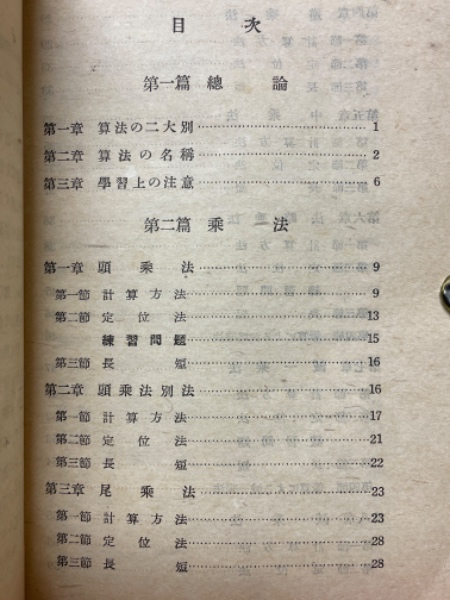 目次
第一篇 總論
第一章 算法の二大別……1
第二章 算法の名稱……2
第三章 學習上の注意……6
第二篇 乘法
第一章 頭乘法……9
第一節 計算方法……9
第二節 定位法……13
練習問題……15
第三節 長短……16
第二章 頭乘法別法……16
第一節 計算方法……17
第二節 定位法……21
第三節 長短……22
第三章 尾乘法……23
第一節 計算方法……23
第二節 定位法……28
第三節 長短……28